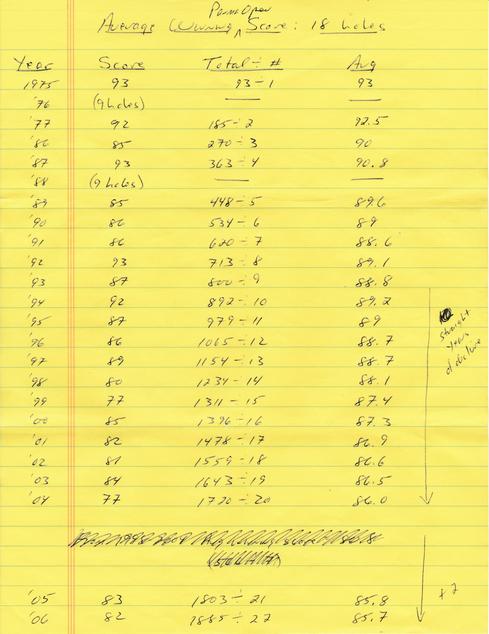 Open
Average Winning ^ Score: 18 holes
Year Score Total ÷ # Avg
1975 93 93 ÷ 1 93
'76 (9 holes) — —
'77 92 185 ÷ 2 92.5
'86 85 270 ÷ 3 90
'87 93 363 ÷ 4 90.8
'88 (9 holes) — —
'89 85 448 ÷ 5 89.6
'90 86 534 ÷ 6 89
'91 86 620 ÷ 7 88.6
'92 93 713 ÷ 8 89.1
'93 87 800 ÷ 9 88.8
'94 92 892 ÷ 10 89.2
'95 87 979 ÷ 11 89
'96 86 1065 ÷ 12 88.7
'97 89 1154 ÷ 13 88.7
'98 80 1234 ÷ 14 88.1
'99 77 1311 ÷ 15 87.4
'00 85 1396 ÷ 16 87.3
'01 82 1478 ÷ 17 86.9
'02 81 1559 ÷ 18 86.6
'03 84 1643 ÷ 19 86.5
'04 77 1720 ÷ 20 86.0
straight
years
of decline
+2
'05 83 1803 ÷ 21 85.8
'06 82 1885 ÷ 22 85.7